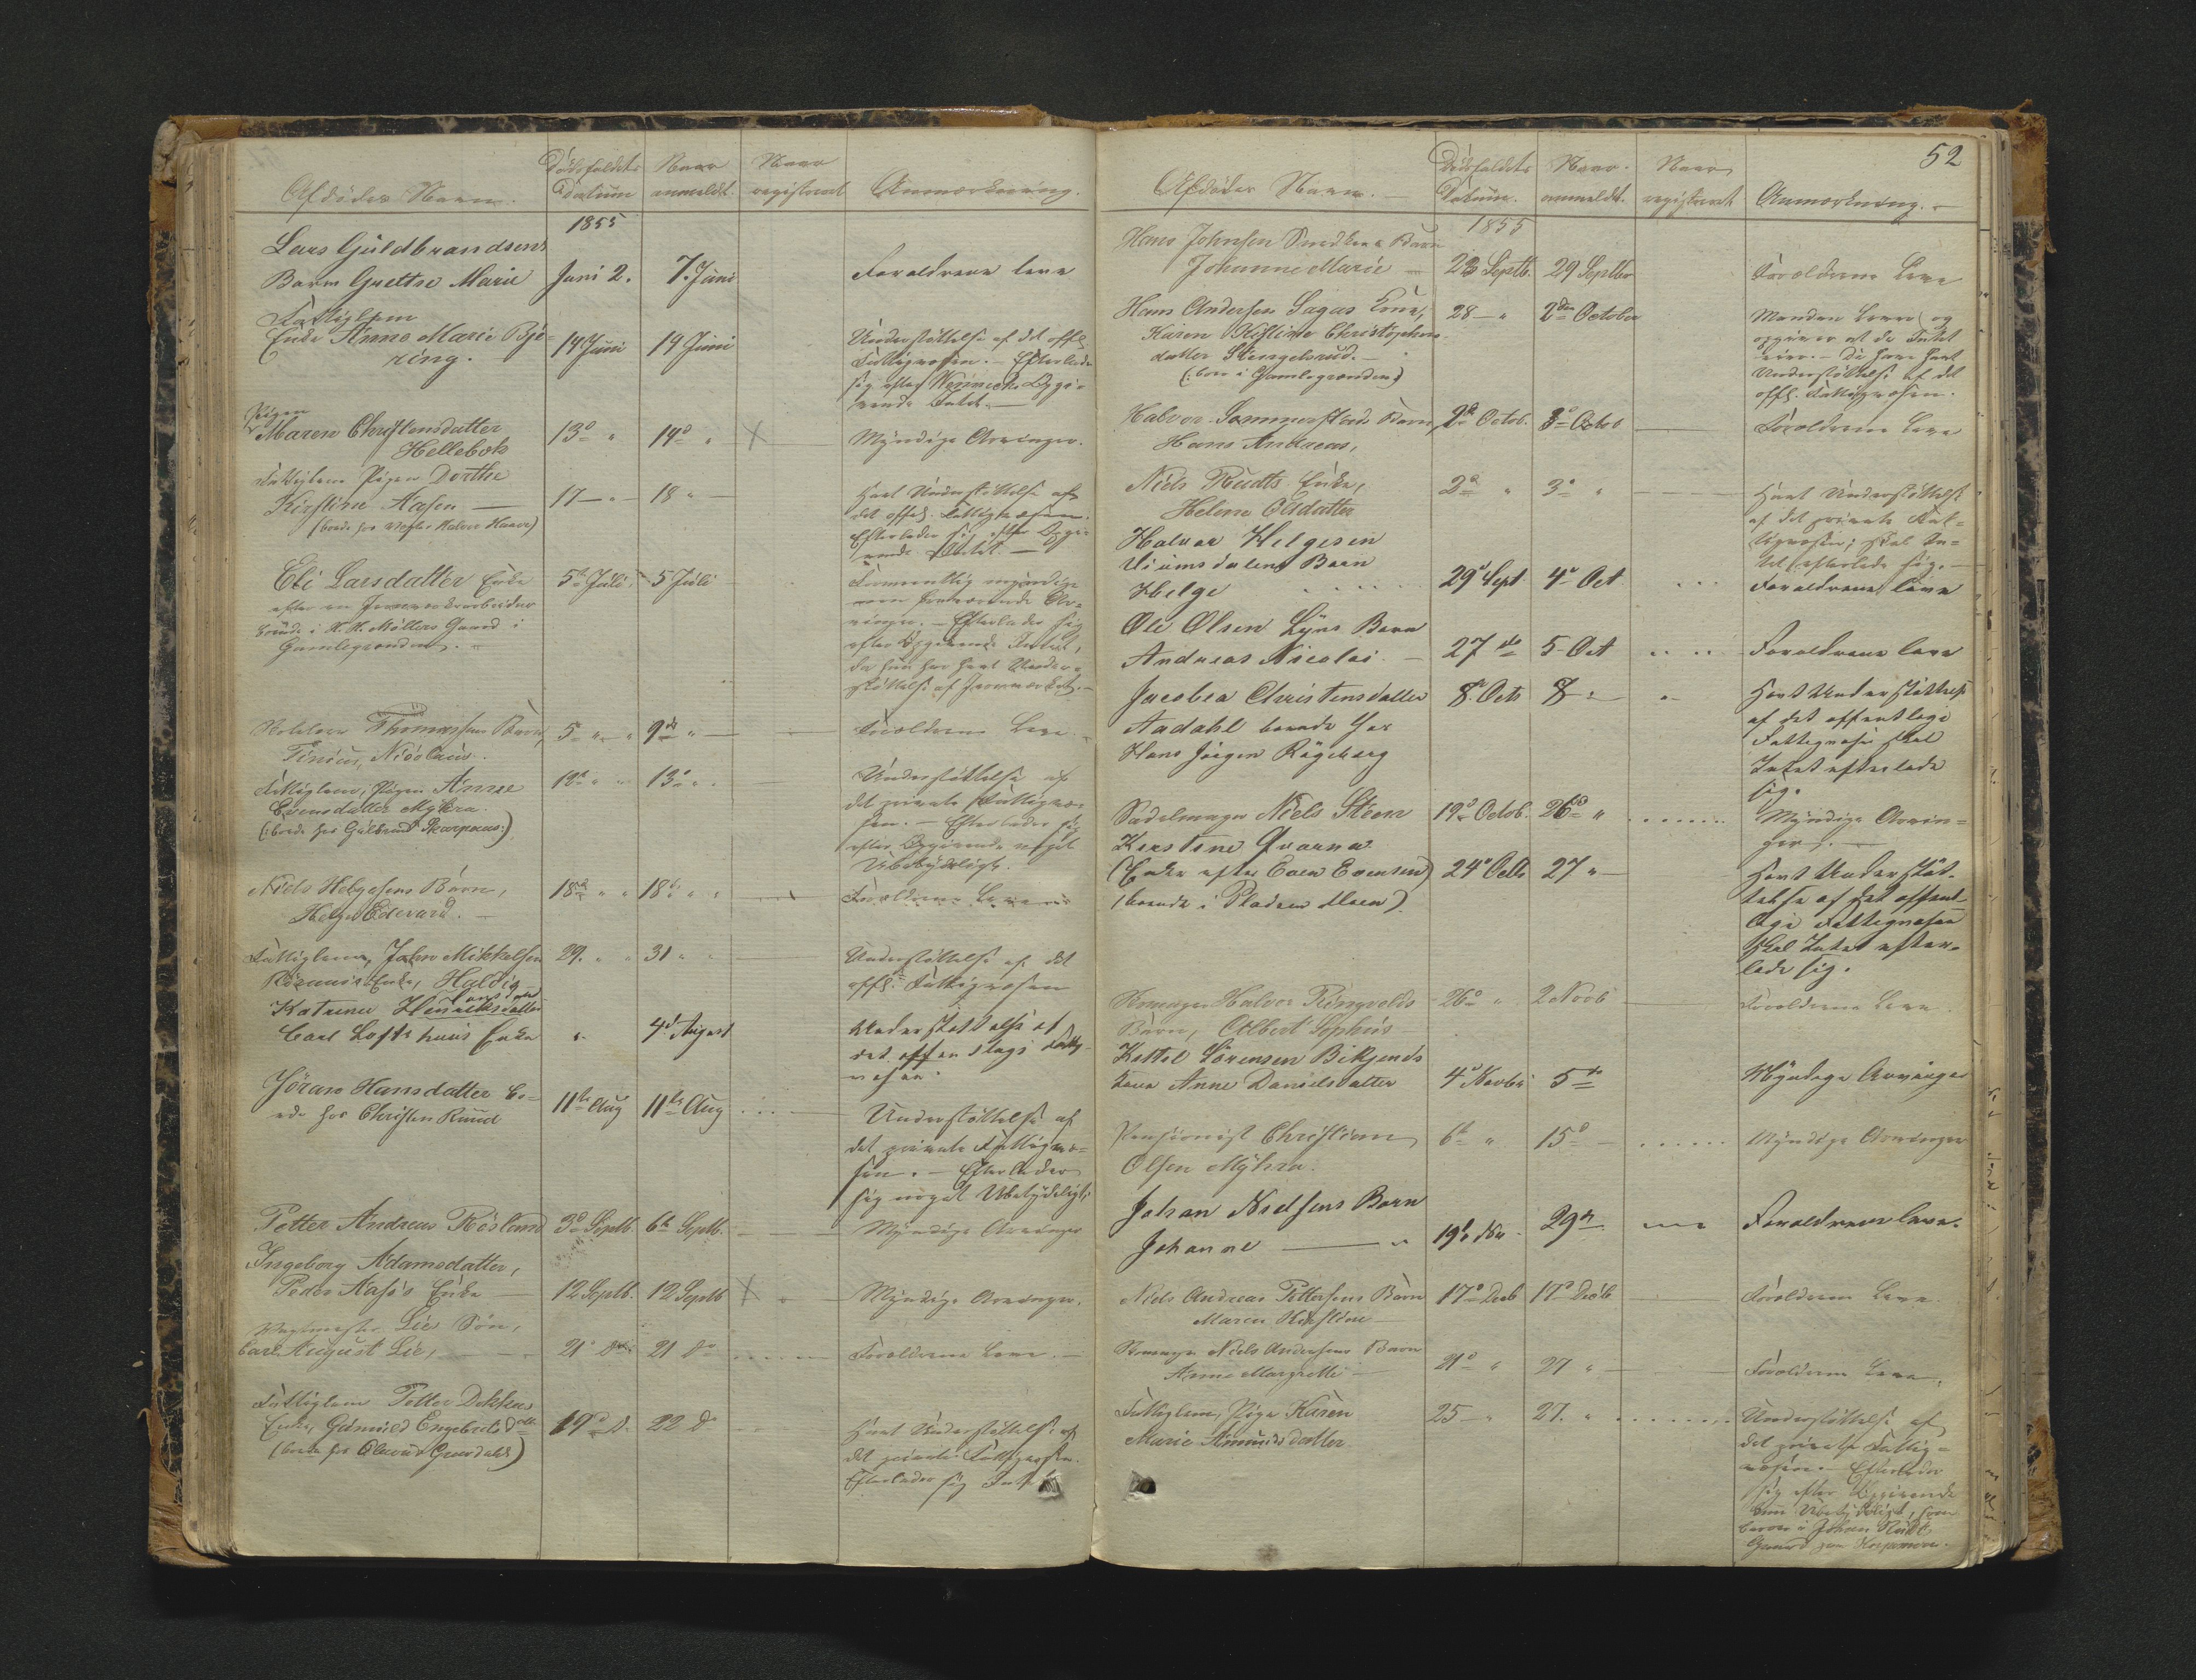 Afdødes Navn.
Dødsfaldets Datum
Naar anmeldt.
Naar registreret
Anmærkning.
1855
Lars Guldbrandsens
Barn Grethe Marie
Juni 2.
7. Juni
Forældrene leve
Fattiglem
Enke Anne Marie Bje-
ring.
14 Juni
14 Juni
Understøttelse af det offtl.
Fattigvæsen. – Efterlader
sig efter Opgi-
vende Intet. –
Pigen
Maren Christensdatter
Hellebok
13de "
14de "
X
Myndige Arvinger.
Fattiglem Pigen Dorthe
Kirstine Aasen —
(boede hos Halvor)
17 — " —
18 " —
Havt Understøttelse af
det offtl. Fattigvæsen.
Efterlader sig efter Opgi-
vende Intet. —
Eli Larsdatter Enke
efter en Jernværksarbeider
boede i H. H. Møllers Gaard i
Gamlegrænden. —
5te Juli
5 Juli
Formentlig myndige
Ar-
vinger. – Efterlader sig
efter Opgivende Intet,
da hun har havt Under-
støttelse af Jernværket. –
Thomassens Barn,
Nicolaus.
5te " "
9de " —
Forældrene leve
Fattiglem, Pigen Anne
Evensdatter Myhra.
(:boede hos Gulbrand Skarpaas:)
12te " "
13de " "
Understøttelse af
det private Fattigvæ-
sen. – Efterlader sig
efter Opgivende noget
Ubetydeligt.
Niels Helgesens Barn,
Helge Edevard. —
18de " "
18de " "
Forældrene leve
Fattiglem, John Mikkelsen
Enke,
29. " "
31 " "
Understøttelse af det
offtl. Fattigvæsen
Katrine Henriksdatter
Carl Lofthuus Enke
"
4de August
Understøttelse af
det offentlige Fattig-
væsen.
Jøran Hansdatter bo-
ede hos Christen Ruud
11te Aug
11te Aug
Understøttelse af
det private Fattigvæ-
sen. – Efterlader
sig noget Ubetydeligt.
Petter Andreas Røsland
3de Septb.
6te Septb.
Myndige Arvinger
Ingeborg Adamsdatter,
Peder Aas's Enke —
12 Septb.
12 Septb
X
Myndige Arvinger.
Lies Søn,
Carl August Lie, —
21de Do
21 Do
Forældrene leve. —
Fattiglem Petter Dokkas
Enke, Gunnild Engebretsdatt
(boede hos)
19de D.
22 Do
Havt Understøttelse af
det private Fattigvæsen.
Efterlader sig Intet
52
Afdødes Navn. —
Dødsfaldets Datum.
Naar anmeldt.
Naar registreret
Anmærkning. —
1855
Hans Johnsen Barn
Johanne Marie —
23 Septb.
29 Septbr
Forældrene leve
Hans Andersen Sagas Kone,
Karen Kistine Christophers-
datter Stengelsrud. —
(:boer i Gamlegrænden:)
28 — "
2den October
Manden lever og
opgiver at de Intet
eier. – De have havt
Understøttelse af det
offtl. Fattigvæsen.
Halvor Sommerstads Barn,
Hans Andreas,
2de Octob.
3de Octob
Forældrene leve
Niels Ruuds Enke,
Helene Olsdatter
2de "
3de "
Havt Understøttelse
af det private Fat-
tigvæsen; skal In-
tet efterlade sig. —
Halvor Helgesen
Uiumsdalens Barn
Helge
29de Sept
4de Oct
Forældrene leve
Ole Olsen Lyns Barn
Andreas Nicolai. —
27de
5 Oct
Forældrene leve
Jacobea Christensdatter
Aadahl boende hos
Hans Jørgen Rygeberg
8de Octr
8 "
Havt Understøttelse
af det offentlige
Fattigvæsen skal
Intet efterlade
sig.
Sadelmager Niels Steen
19de Octob.
26de "
Myndige Arvin-
ger. —
Kirstine Qvarna
(Enke efter Even Evensen)
(boende i Pladsen Moen)
24de Octb
27 "
Havt Understøt-
telse af det offent-
lige Fattigvæsen
skal Intet efter-
lade sig.
Halvor Ringvolds
Barn, Albert Sophus
26de "
2 Novb
Forældrene leve.
Kittel Sørensen Bikjends
Kone Anne Danielsdatter
4de Novbr
5te
Myndige Arvinger
Pensionist Christian
Olsen Myhra.
6te "
15de —
Myndige Arvinger
Johan Nielsens Barn
Johanne — "
19de Nov
29de
Forældrene leve.
Niels Andreas Pettersens Barn
Maren Kirstine —
17de Decb
17de Decb
Forældrene leve.
Niels Andersens Barn
Anne Margrethe —
21de "
27 "
Forældrene leve.
Fattiglem, Pige Karen
Marie Amundsdatter
25 — "
27. "
Understøttelse af
det private Fattig-
væsen. – Efterlader
sig efter Opgivende
kun Ubetydeligt, som
beroer i Johan Ruuds
Gaard